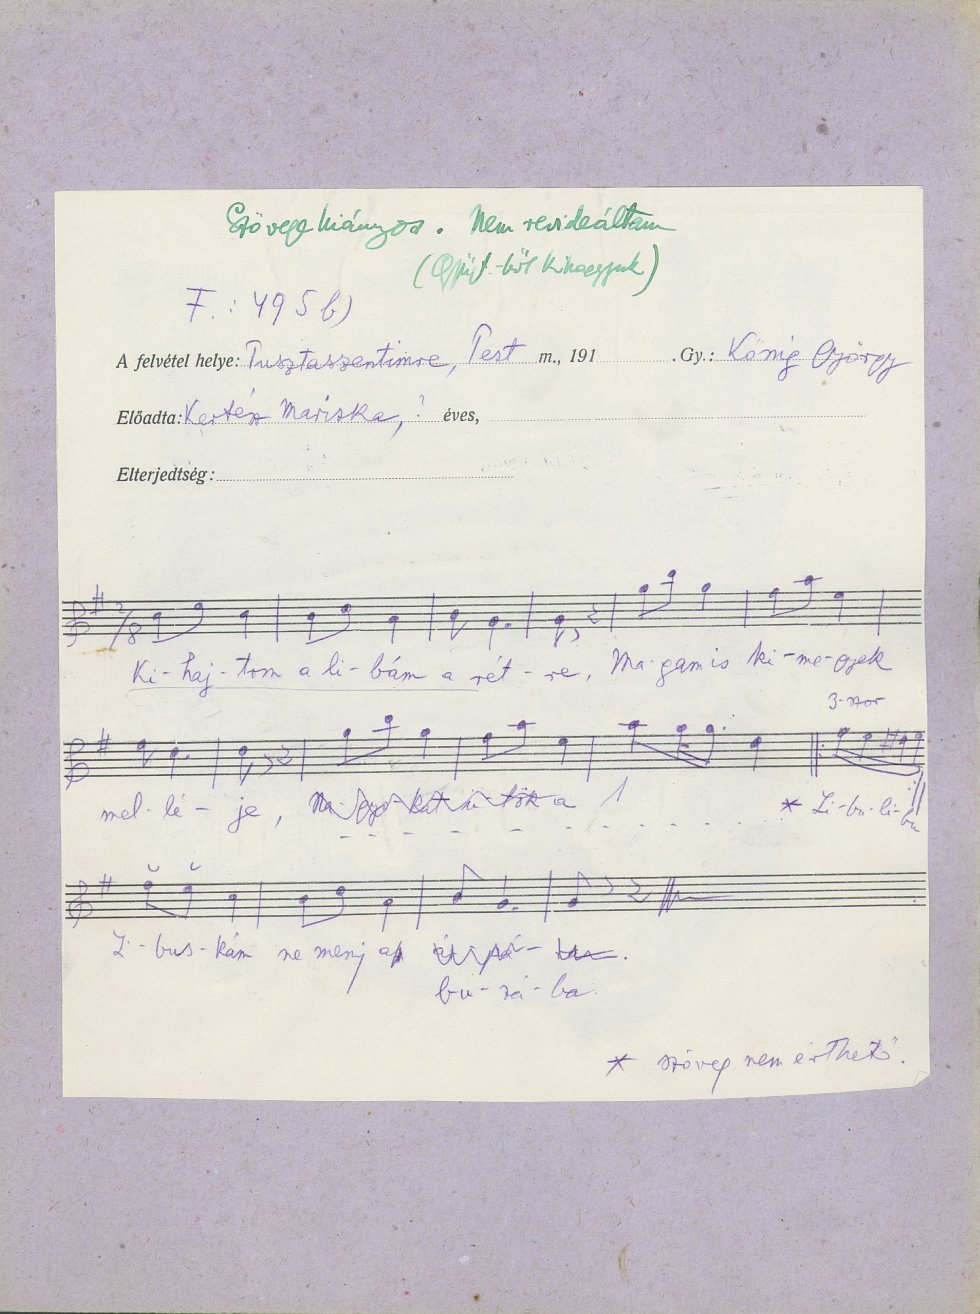 Szövege hiányos. Nem revideáltam
(Gyűjt.-ből kihagyjuk)
F.: 495 b)
A felvétel helye: Pusztaszentimre, Pest m., 191 . Gy.: Kőnig György
Előadta: Kertész Mariska, ? éves,
Elterjedtség:
2/8
Ki-haj-tom a li-bám a rét-re, Ma-gam is ki-me-gyek
3-szor
mel-lé-je, Na-gyo-kat ü-tök a
* Li-bu-li-bu
Li-bus-kám ne menj a
bu-zá-ba.
* szöveg nem érthető.